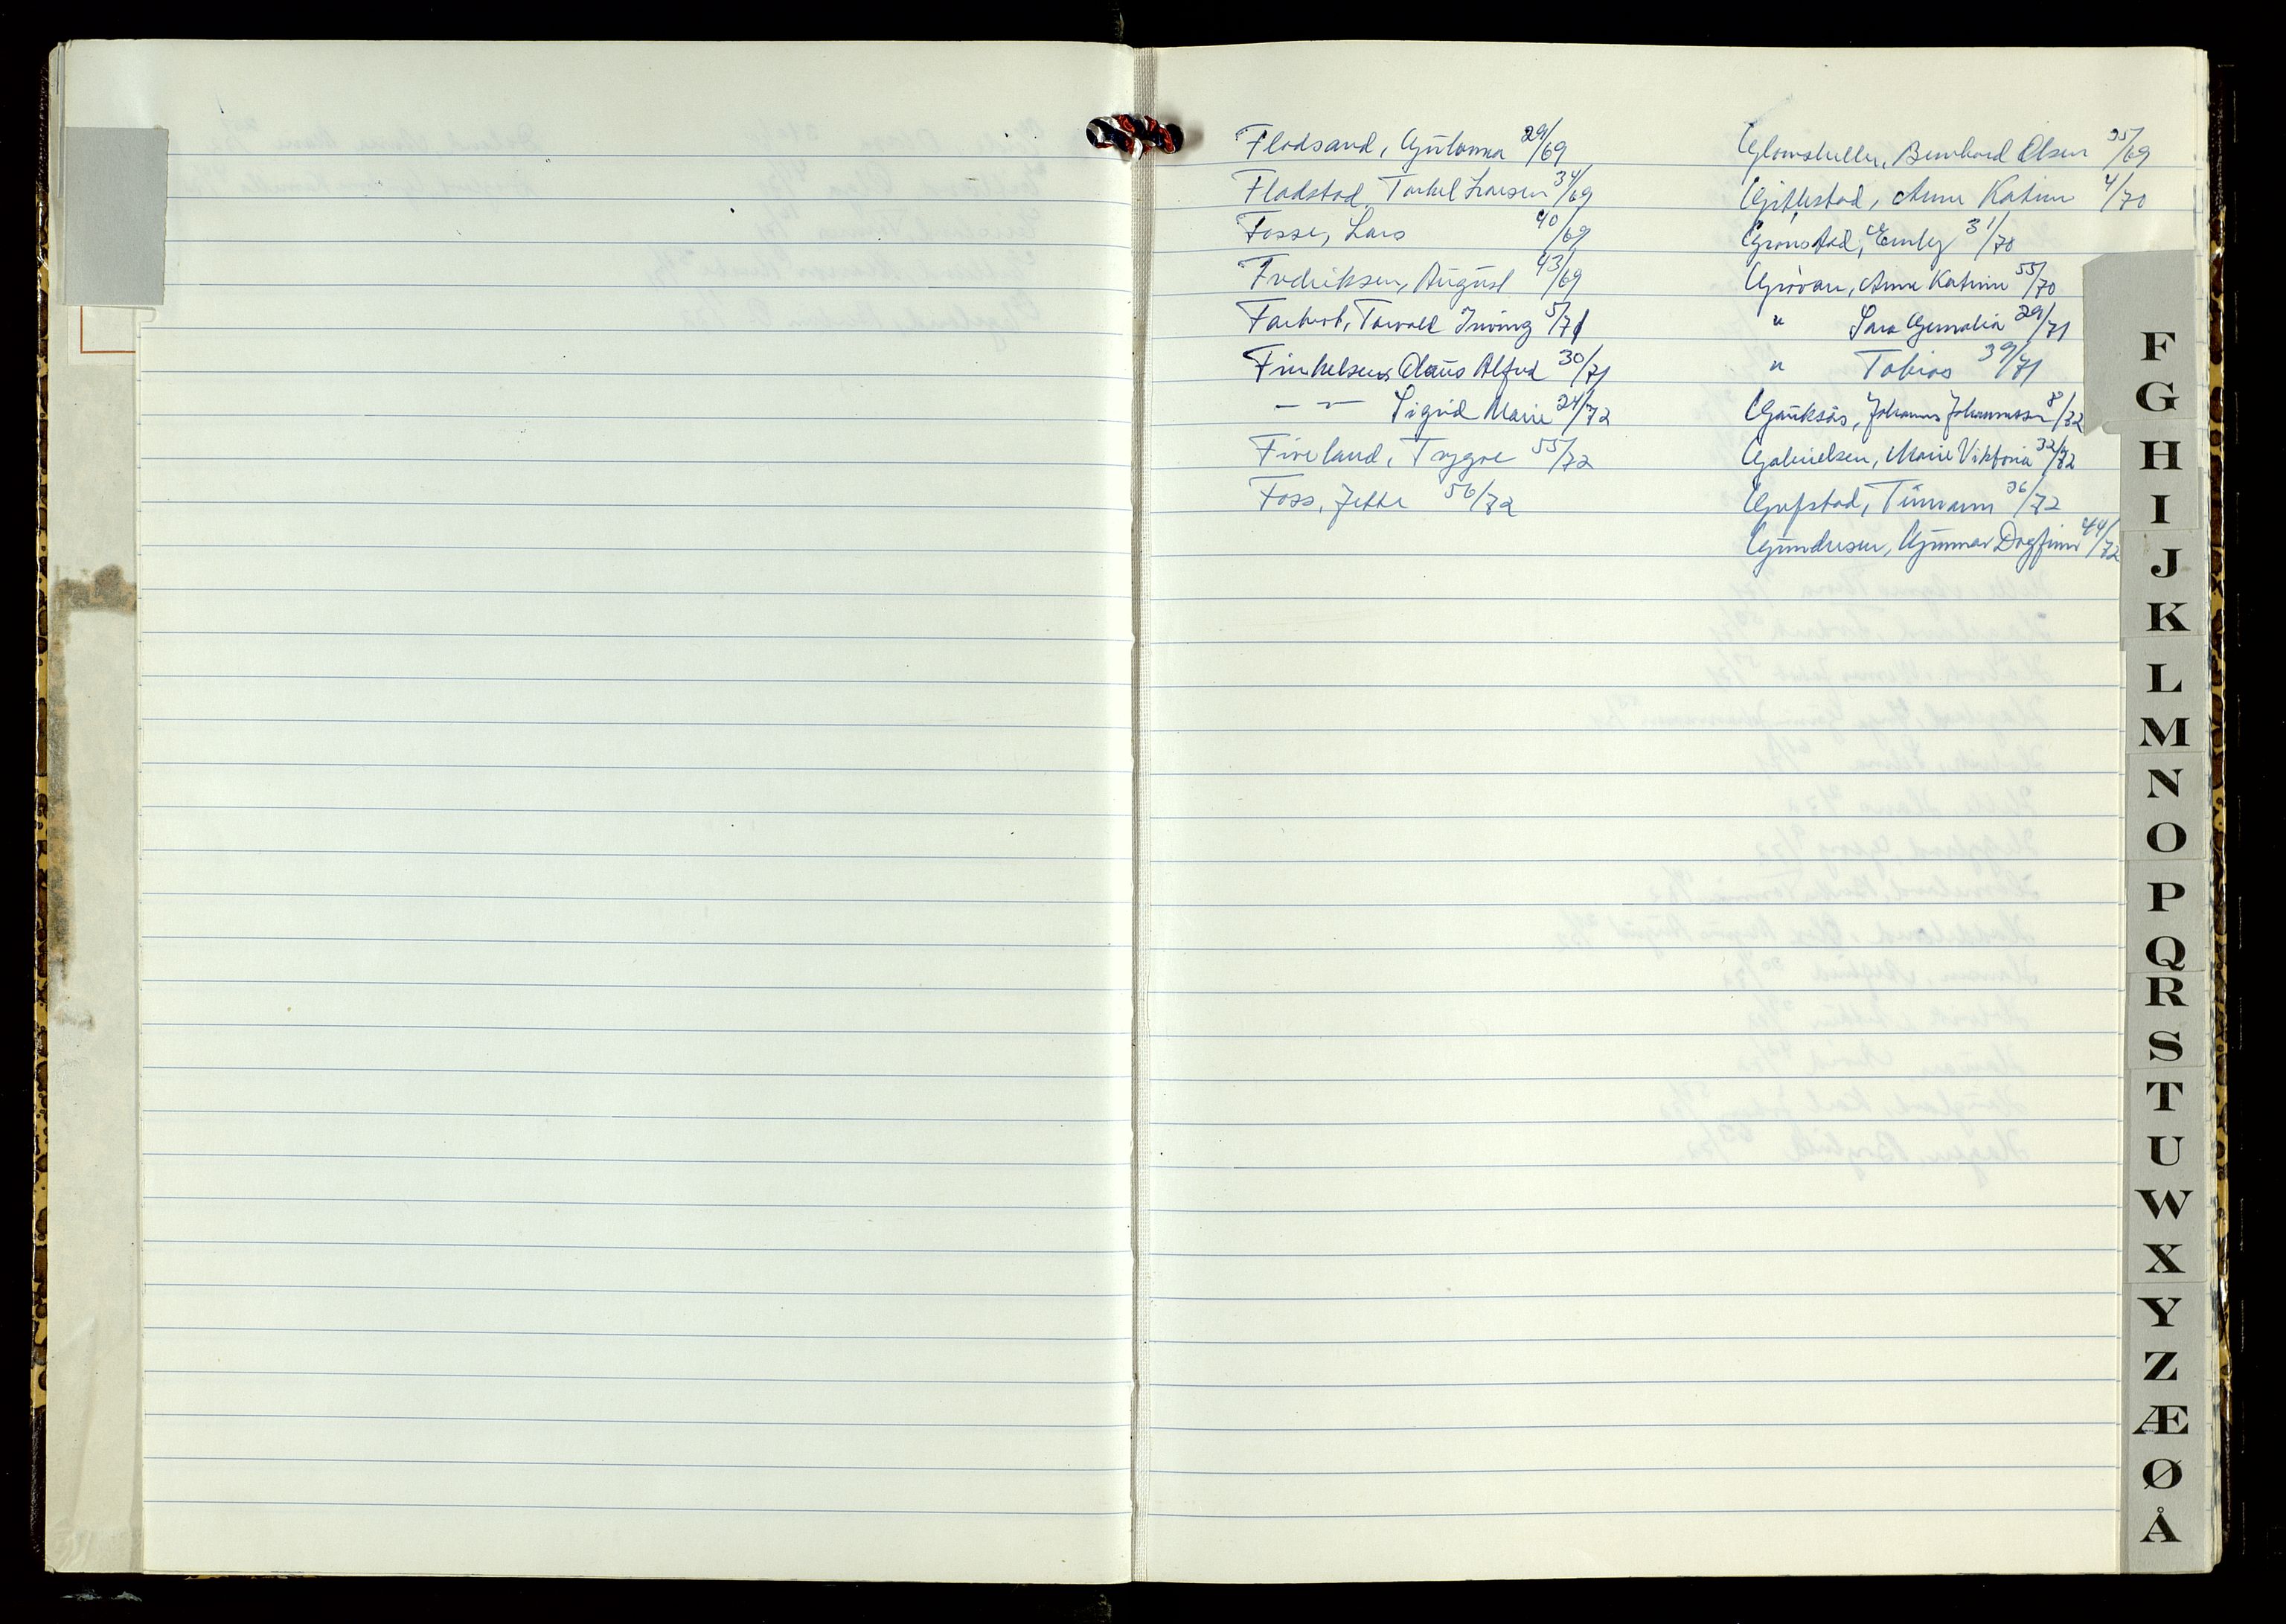 Flodsand, Gülonna 29/69
Flodstad, Torkel Larsen 34/69
Fosse, Lars 40/69
Fredriksen, August 43/69
Torvald Irving 5/71
Claus Alfred 30/71
— " — Sigrid Marie 24/72
Fiveland, Trygve 55/72
Foss, Jette 56/72
Bernhard Olsen 25/69
Gitlestad, Anne Katrine 4/70
Grønstad, Emly 31/70
Grövan, Anne Katrine 55/70
" Sara Gemalia 29/71
" Tobias 39/71
Gauksås, Johannes Johannessen 8/72
Gabrielsen, Marie Viktoria 32/72
Grefstad, 36/72
Gundersen, Gunnar Dagfinn 44/72
F
G
H
I
J
K
L
M
N
O
P
Q
R
S
T
U
W
X
Y
Z
Æ
Ø
Å